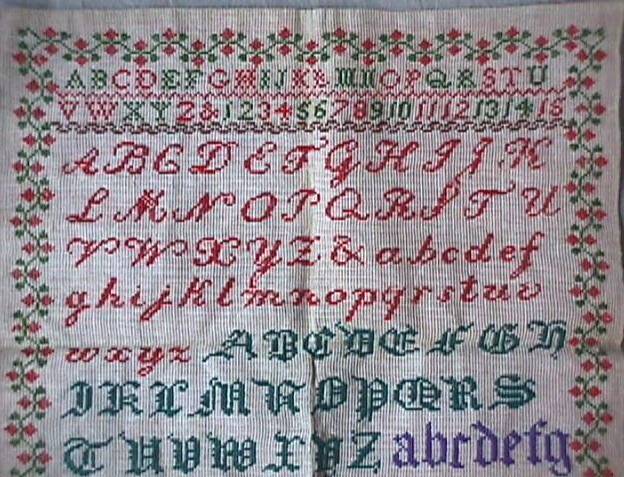 ABCDEFGHIJKLMNOPQRSTU
VWXYZ&123456789101112131415
ABCDEFGHIJK
LMNOPQRSTU
VWXYZ&abcdef
ghijklmnopqrstuv
wxyz ABCDEFGH
IKLMNOPQRS
TUVWXYZ abcdefg